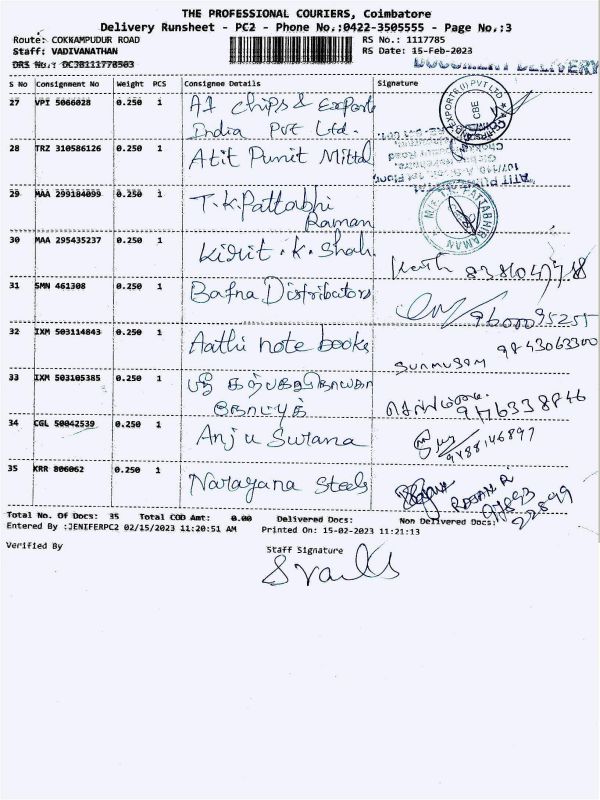 THE PROFESSIONAL COURIERS, Coimbatore
Delivery Runsheet - PC2 - Phone No.:0422-3505555 - Page No.:3
Route: COKKAMPUDUR ROAD RS No.: 1117785
Staff: VADIVANATHAN RS Date: 15-Feb-2023
DRS No.: DCJB111778503
DOCUMENT DELIVERY
S No Consignment No Weight PCS Consignee Details Signature
27 VPI 5066028 0.250 1 A1 chips & Exports
India Pvt Ltd.
28 TRZ 310586126 0.250 1 Atit Punit Mittal
29 MAA 299184099 0.250 1 T.K.Pattabhi
Raman
30 MAA 295435237 0.250 1 Kirit.K.Shah
31 SMN 461308 0.250 1 Bafna Distributors
9600095255
32 IXM 503114843 0.250 1 Aathi note books
9843063300
33 IXM 503105385 0.250 1
9176338846
34 CGL 50042539 0.250 1 Anju Surana
9488146897
35 KRR 806062 0.250 1 Narayana Steels
Total No. Of Docs: 35 Total COD Amt: 0.00 Delivered Docs: Non Delivered Docs:
Entered By :JENIFERPC2 02/15/2023 11:20:51 AM Printed On: 15-02-2023 11:21:13
Verified By Staff Signature